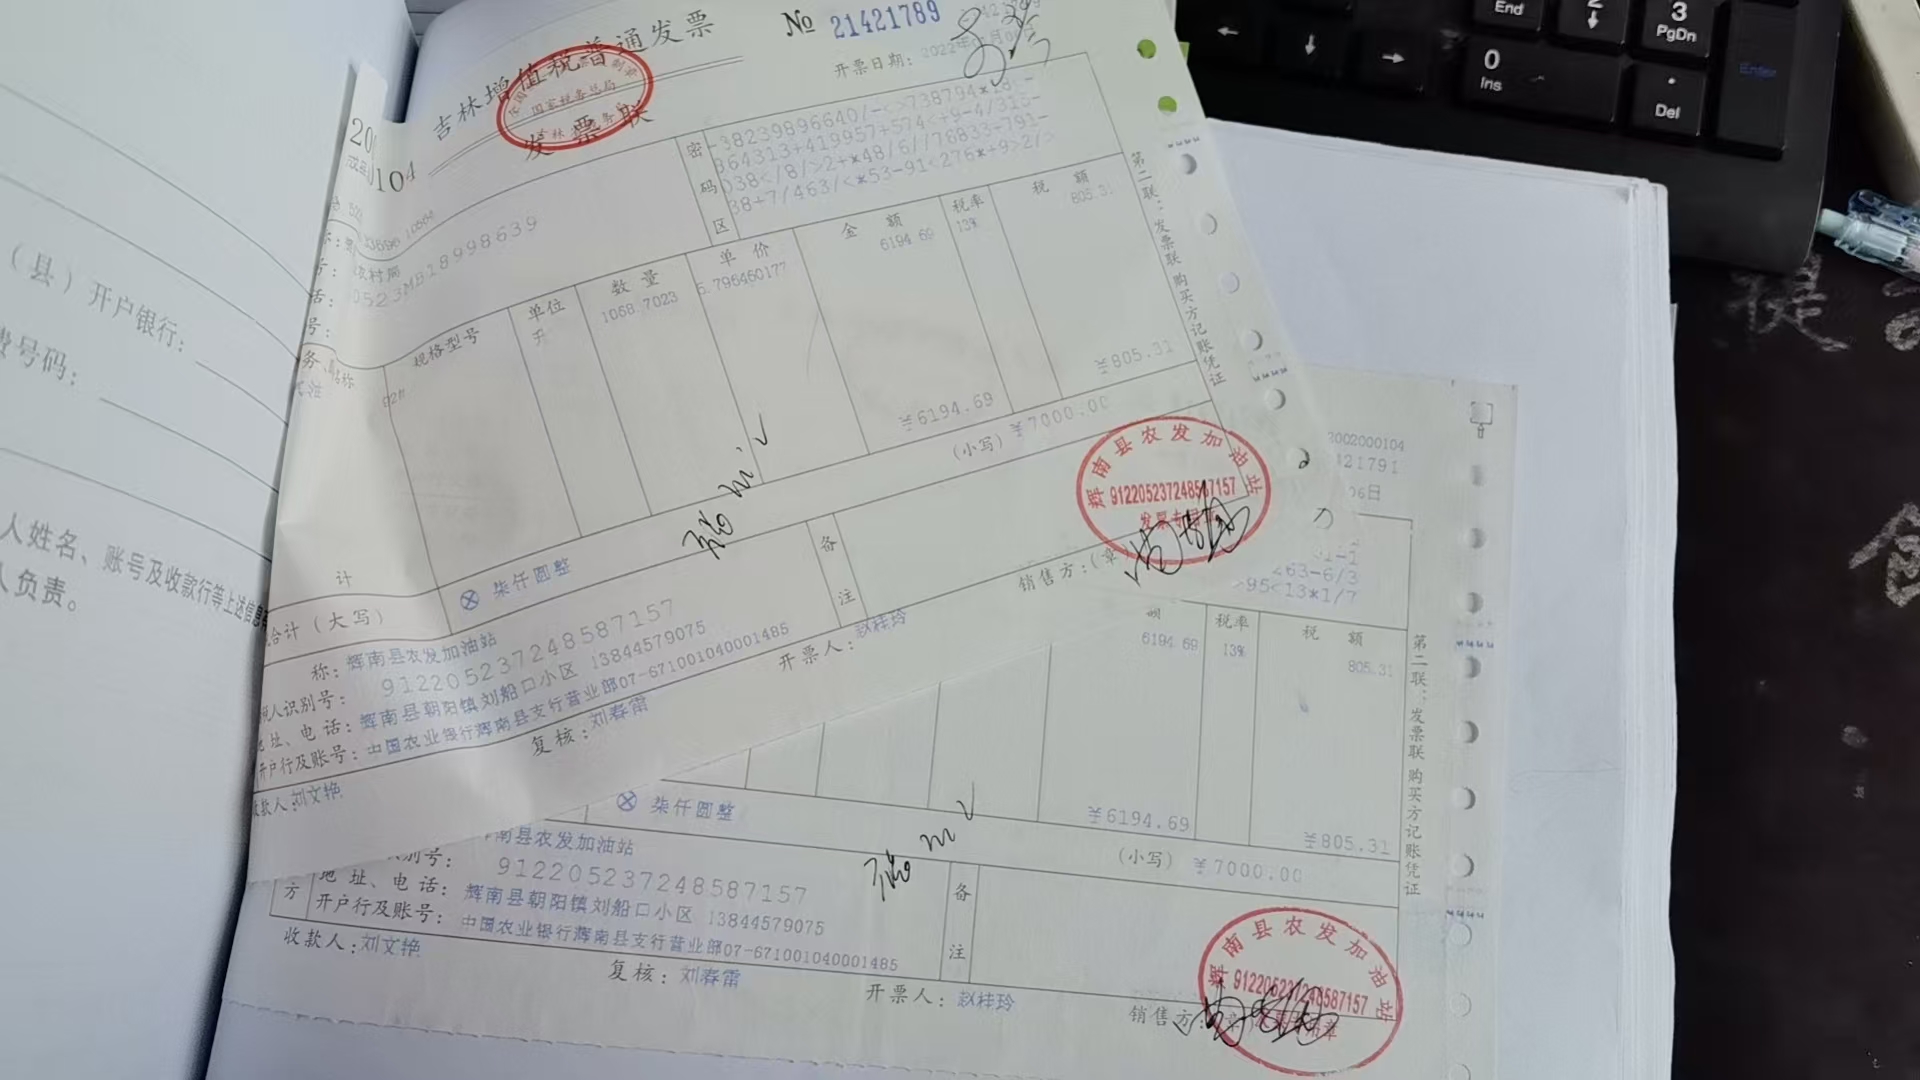 （县）开户银行：
费号码：
人姓名、账号及收款行等上述信息
人负责。
吉林增值税普通发票
发票联
国家税务总局
№ 21421789
开票日期：
104
密码区
-38239896640/-<>738794*
364313+419957+574<+9-4/315-
038</8/>2+*48/6//76833-791-
38+7/463/<*53-91<276*+9>2/>
0523MB18998639
农村局
规格型号
单位
数量
单价
金额
税率
税额
92#
升
1068.7023
5.796460177
6194.69
13%
805.31
¥6194.69
¥805.31
计
合计（大写）
⊗ 柒仟圆整
（小写）¥7000.00
称：辉南县农发加油站
人识别号：912205237248587157
地址、电话：辉南县朝阳镇刘船口小区 13844579075
开户行及账号：中国农业银行辉南县支行营业部07-671001040001485
备注
收款人：刘文艳
复核：刘春雷
开票人：赵桂玲
销售方：（章）
辉南县农发加油站
912205237248587157
发票专用章
第二联：发票联 购买方记账凭证
2002000104
21791
06日
263-6/3
>95<13*1/7
额
税率
税额
6194.69
13%
805.31
¥6194.69
¥805.31
⊗ 柒仟圆整
（小写）¥7000.00
辉南县农发加油站
别号：912205237248587157
地址、电话：辉南县朝阳镇刘船口小区 13844579075
开户行及账号：中国农业银行辉南县支行营业部07-671001040001485
方
备注
收款人：刘文艳
复核：刘春雷
开票人：赵桂玲
销售方：
辉南县农发加油站
912205237248587157
第二联：发票联 购买方记账凭证
End
2
3
PgDn
0
Ins
.
Del
Enter